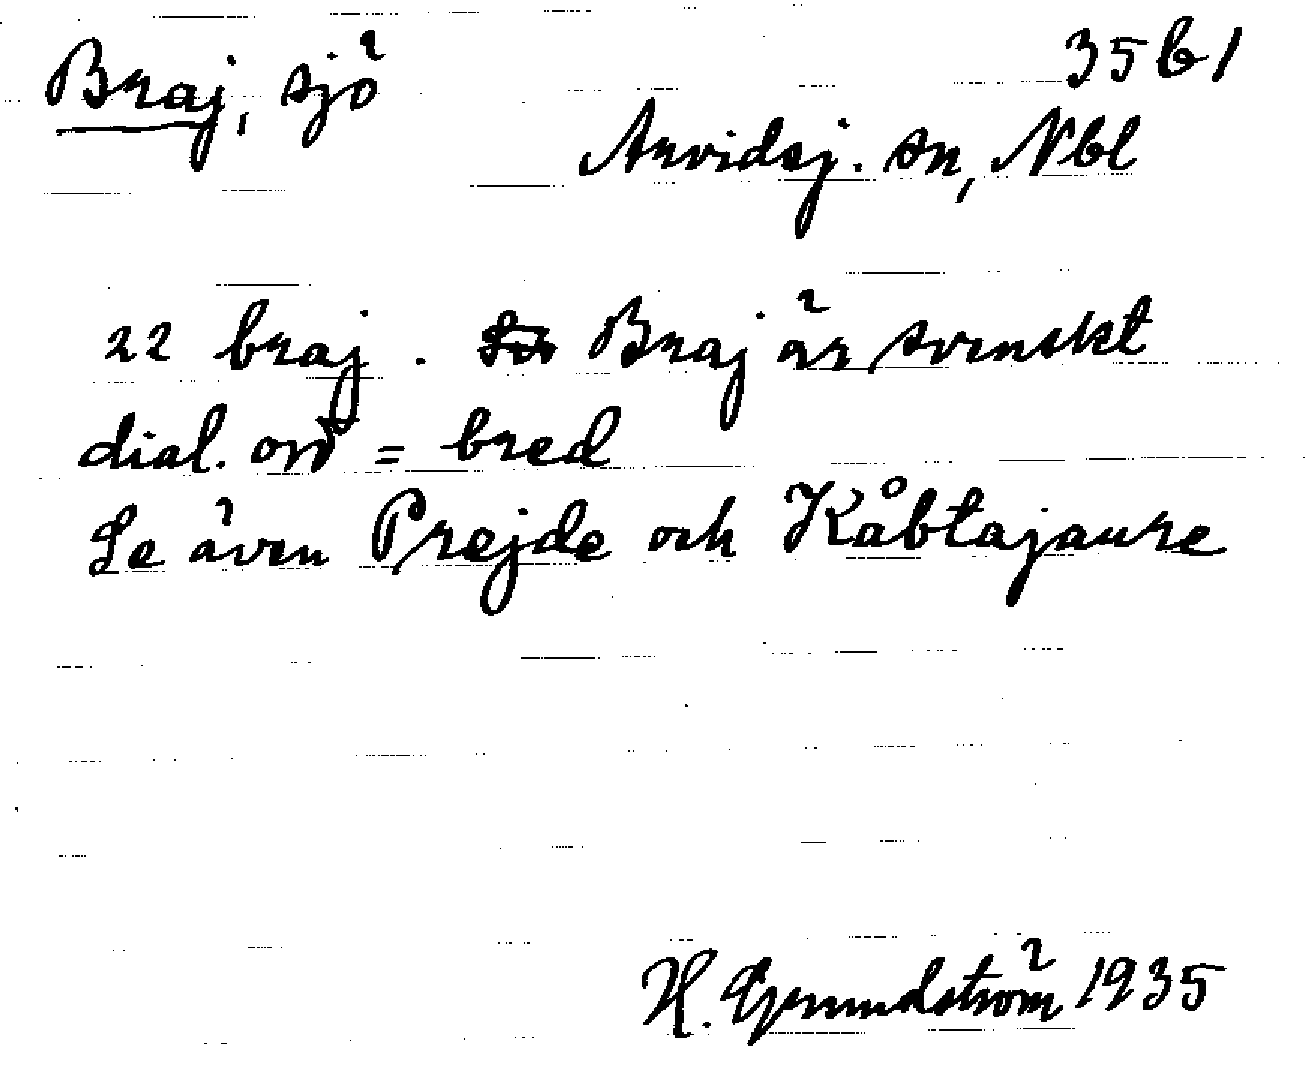 Braj, sjö
35 b 1
Arvidsj. sn, Nbl
22 braj. Braj är svenskt
dial. ord = bred
Se även Prejde och Kåbtajaure
H. Grundström 1935